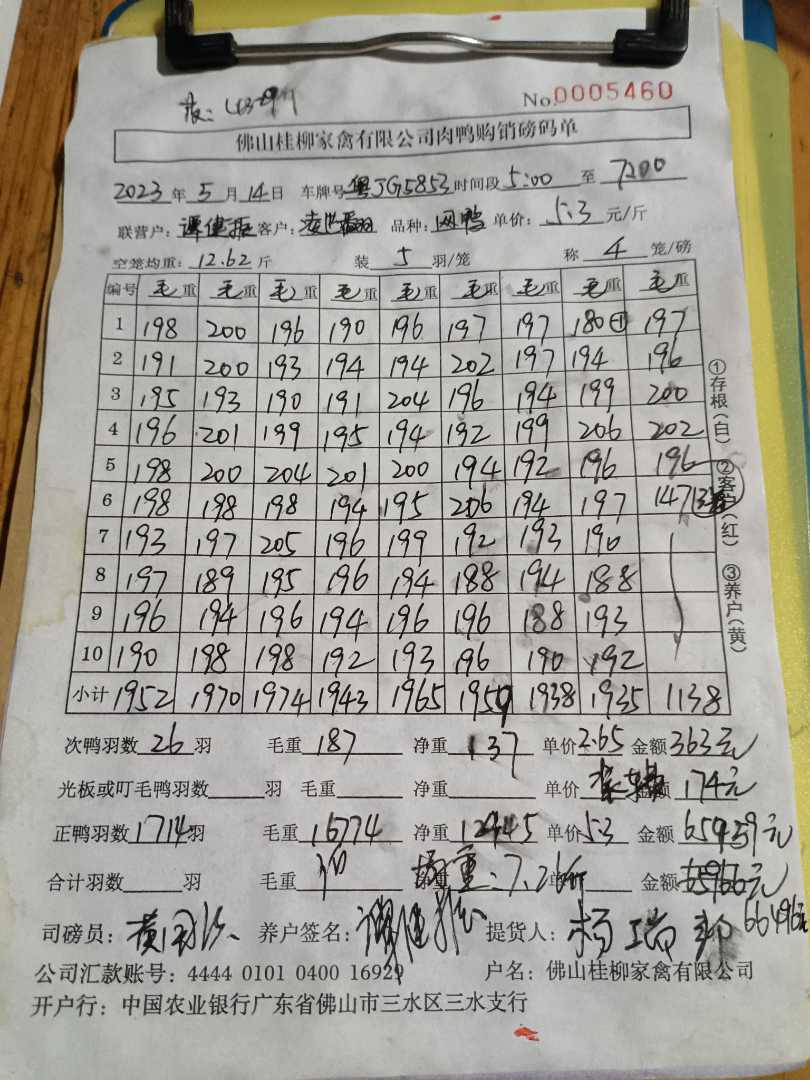 No.0005460
佛山桂柳家禽有限公司肉鸭购销磅码单
2023年5月14日 车牌号粤JG5853时间段5:00至7200
联营户:谭健振 客户: 品种: 网鸭 单价: 5.3元/斤
空笼均重: 12.62斤 装5羽/笼 称4笼/磅
编号 毛重 毛重 毛重 毛重 毛重 毛重 毛重 毛重 毛重
1 198 200 196 190 196 197 197 180 197
2 191 200 193 194 194 202 197 194 196
3 195 193 190 191 204 196 194 199 200
4 196 201 199 195 194 192 199 206 202
5 198 200 204 201 200 194 192 196 196
6 198 198 198 194 195 206 194 197 147
7 193 197 205 196 199 192 193 190
8 197 189 195 196 194 188 194 188
9 196 194 196 194 196 196 188 193
10 190 198 198 192 193 196 190 192
小计 1952 1970 1974 1943 1965 1959 1938 1935 1138
①存根(白) ②客户(红) ③养户(黄)
次鸭羽数26羽 毛重187 净重137 单价2.65 金额363元
光板或叮毛鸭羽数 羽 毛重 净重 单价 金额174元
正鸭羽数1714羽 毛重16774 净重12445 单价5.3 金额65959元
合计羽数 羽 毛重 均重:7.26斤 单价 金额65966元
66496元
司磅员: 养户签名: 提货人: 杨瑞
公司汇款账号: 4444 0101 0400 16929 户名: 佛山桂柳家禽有限公司
开户行: 中国农业银行广东省佛山市三水区三水支行